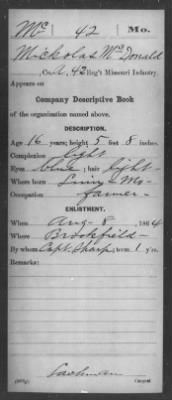 Mc 42 Mo.
Mickolas McDonald
, Co. , 42 Reg't Missouri Infantry.
Appears on
Company Descriptive Book
of the organization named above.
DESCRIPTION.
Age 16 years; height 5 feet 8 inches.
Complexion light
Eyes blue; hair light
Where born Linn - Mo-
Occupation farmer-
ENLISTMENT.
When Aug - 8, 1864
Where Brookfield-
By whom Capt Sharp; term 1 y'rs.
Remarks:
Copyist.